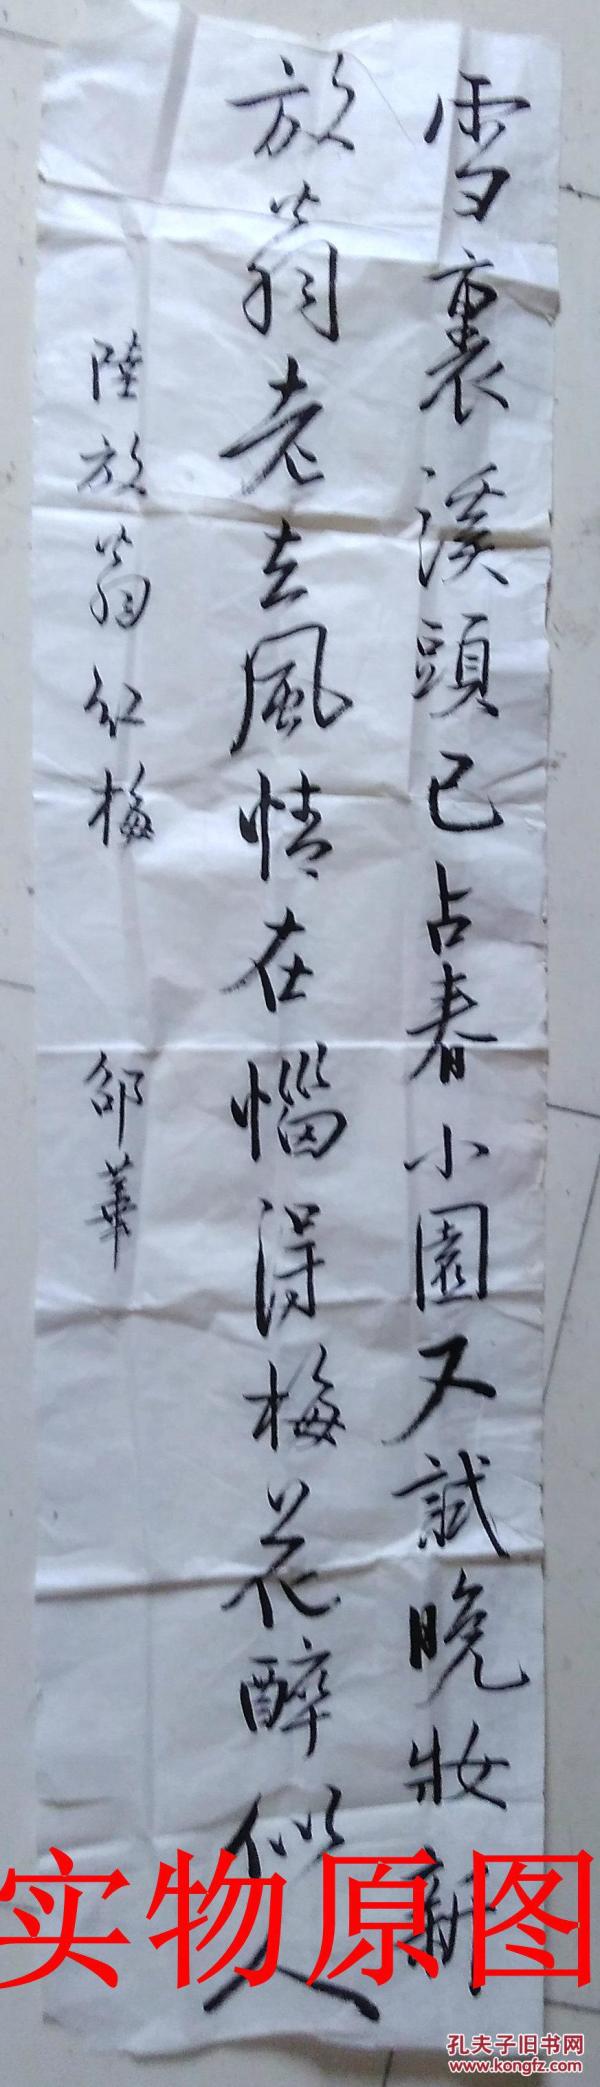 雪裏溪頭已占春小園又試晚妝新
放翁老去風情在惱得梅花醉似人
陸放翁紅梅 邵華
实物原图
孔夫子旧书网
www.kongfz.com